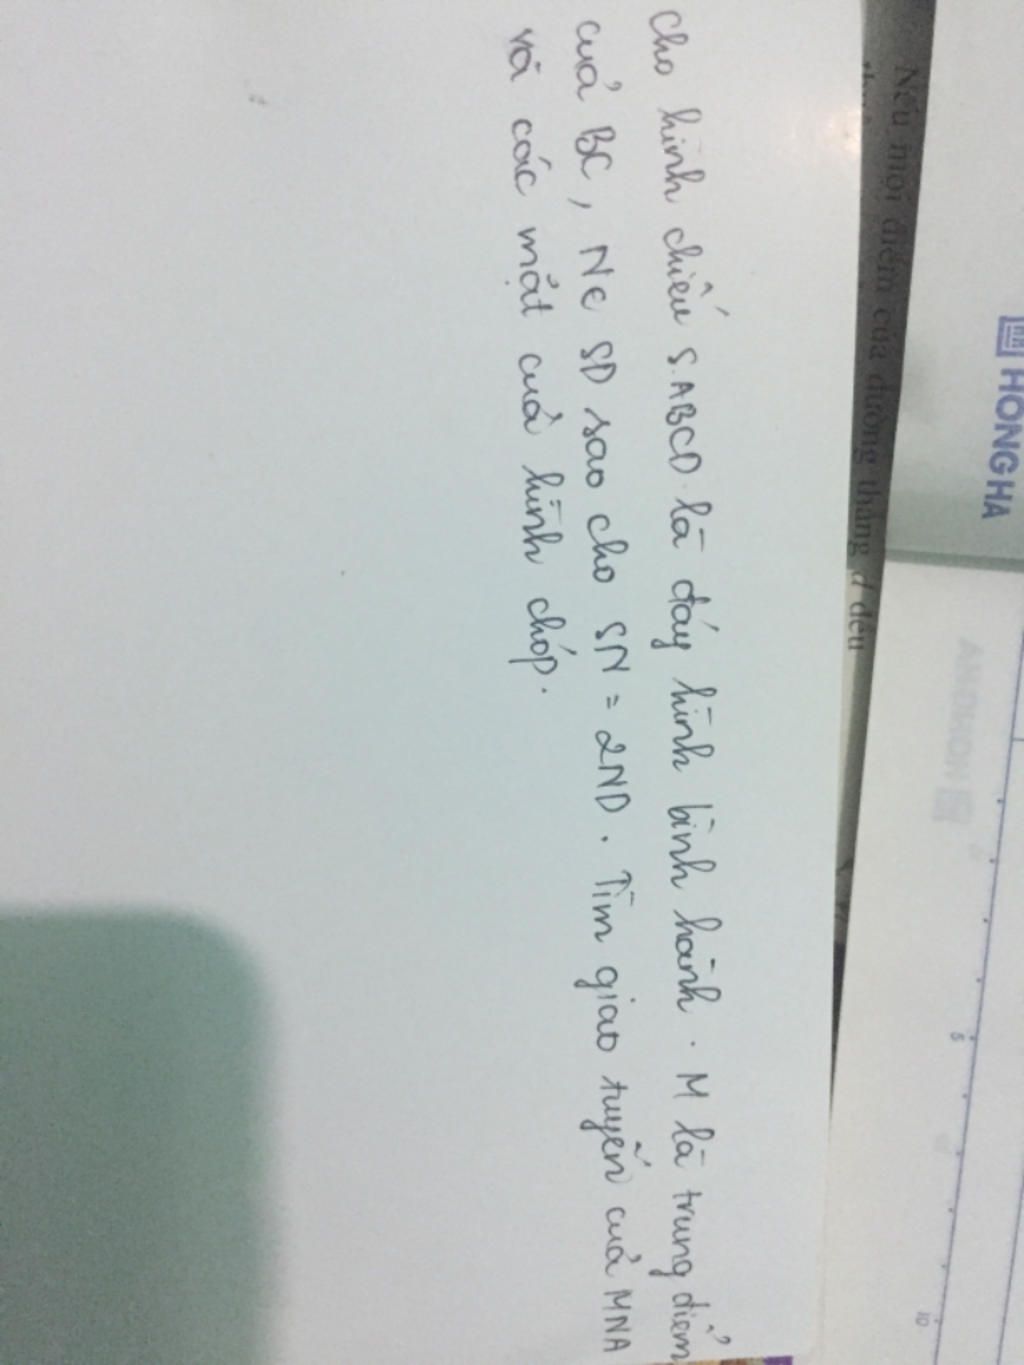 Nếu mọi điểm của đường thẳng d đều
HONG HA
cho hình chiếu S.ABCD là đáy hình bình hành. M là trung điểm
cuả BC, N∈ SD sao cho SN = 2ND. Tìm giao tuyến cuả MNA
và các mặt cuả hình chóp.
5
10